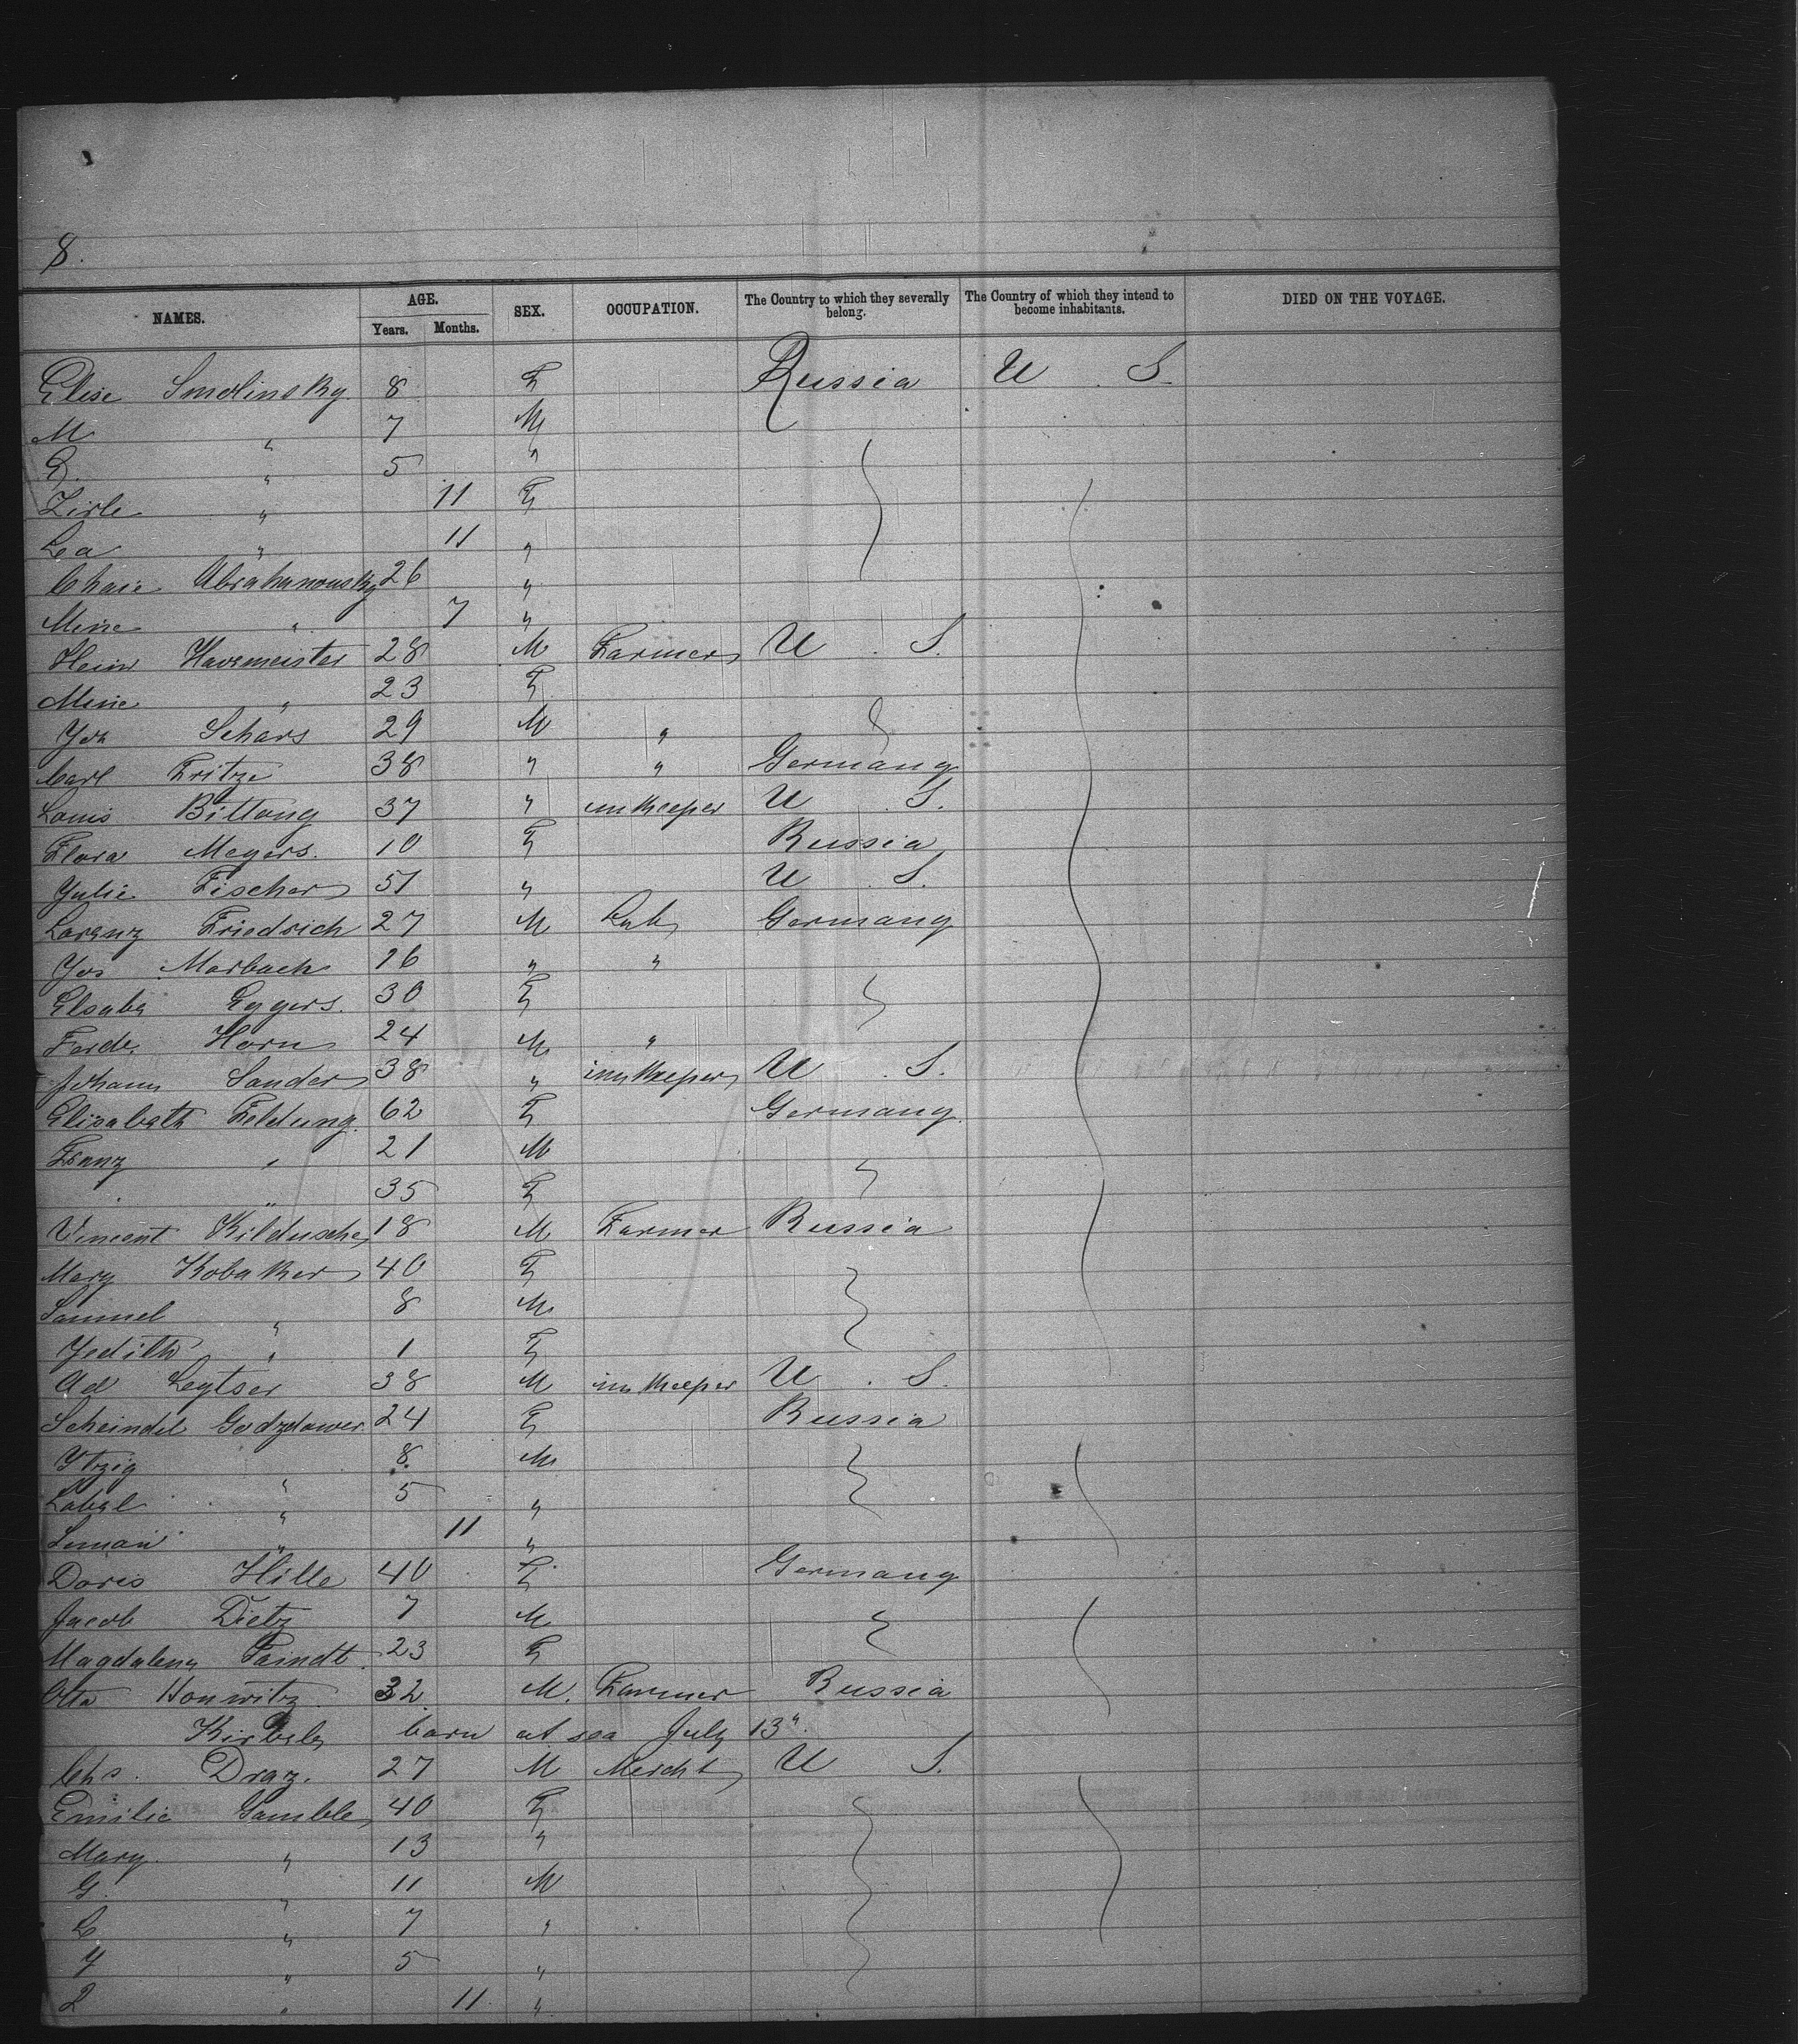 8.
NAMES. AGE. Years. Months. SEX. OCCUPATION. The Country to which they severally belong. The Country of which they intend to become inhabitants. DIED ON THE VOYAGE.
Elise Smolinsky 8 F Russia U S.
M " 7 M
" 5 "
Zirle " 11 F
Lea " 11 "
Chaie Abrahanowsky 26 "
Mine " 7 "
Heinr Havemeister 28 M Farmer U S.
Mine " 23 F
Jos Schars 29 M "
Carl Fritze 38 " " Germany
Louis Bittong 37 " innkeeper U S.
Flora Meyers. 10 F Russia
Julie Fischer 51 " U S.
Lorenz Friedrich 27 M Lab Germany
Jos Marbach 26 " "
Elsabe Eggers. 30 F
Ferde. Horn 24 M "
Johann Sander 38 " innkeeper U S.
Elisabeth Feldung. 62 F Germany
Franz " 21 M
" " 35 F
Vincent Kildusche 18 M Farmer Russia
Mary Kobaker 40 F
Samuel " 8 M
Jedith " 1 F
Ad Leytser 38 M innkeeper U S.
Scheindel Godzdower 24 F Russia
Ytzig " 8 M
Label " 5 "
" 11 "
Doris Hille 40 F Germany
Jacob Dietz 7 M
Magdalena Paindt 23 F
Otto Honwitz 32 M. Farmer Russia
born at sea July 13"
Chs. Draz. 27 M Mercht U S.
Emilie Gamble 40 F
Mary " 13 "
G. " 11 M
L " 7 "
Y " 5 "
L " 11 "